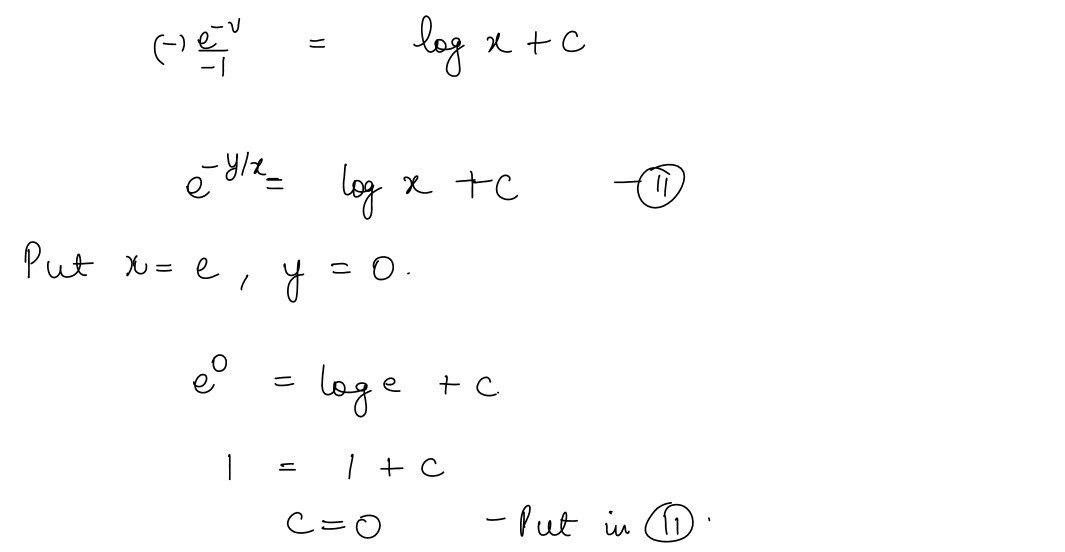 (-) e^-v / -1 = log x + c
e^-y/x = log x + c - II
Put x = e, y = 0.
e^0 = log e + c
1 = 1 + c
c = 0 - Put in II.